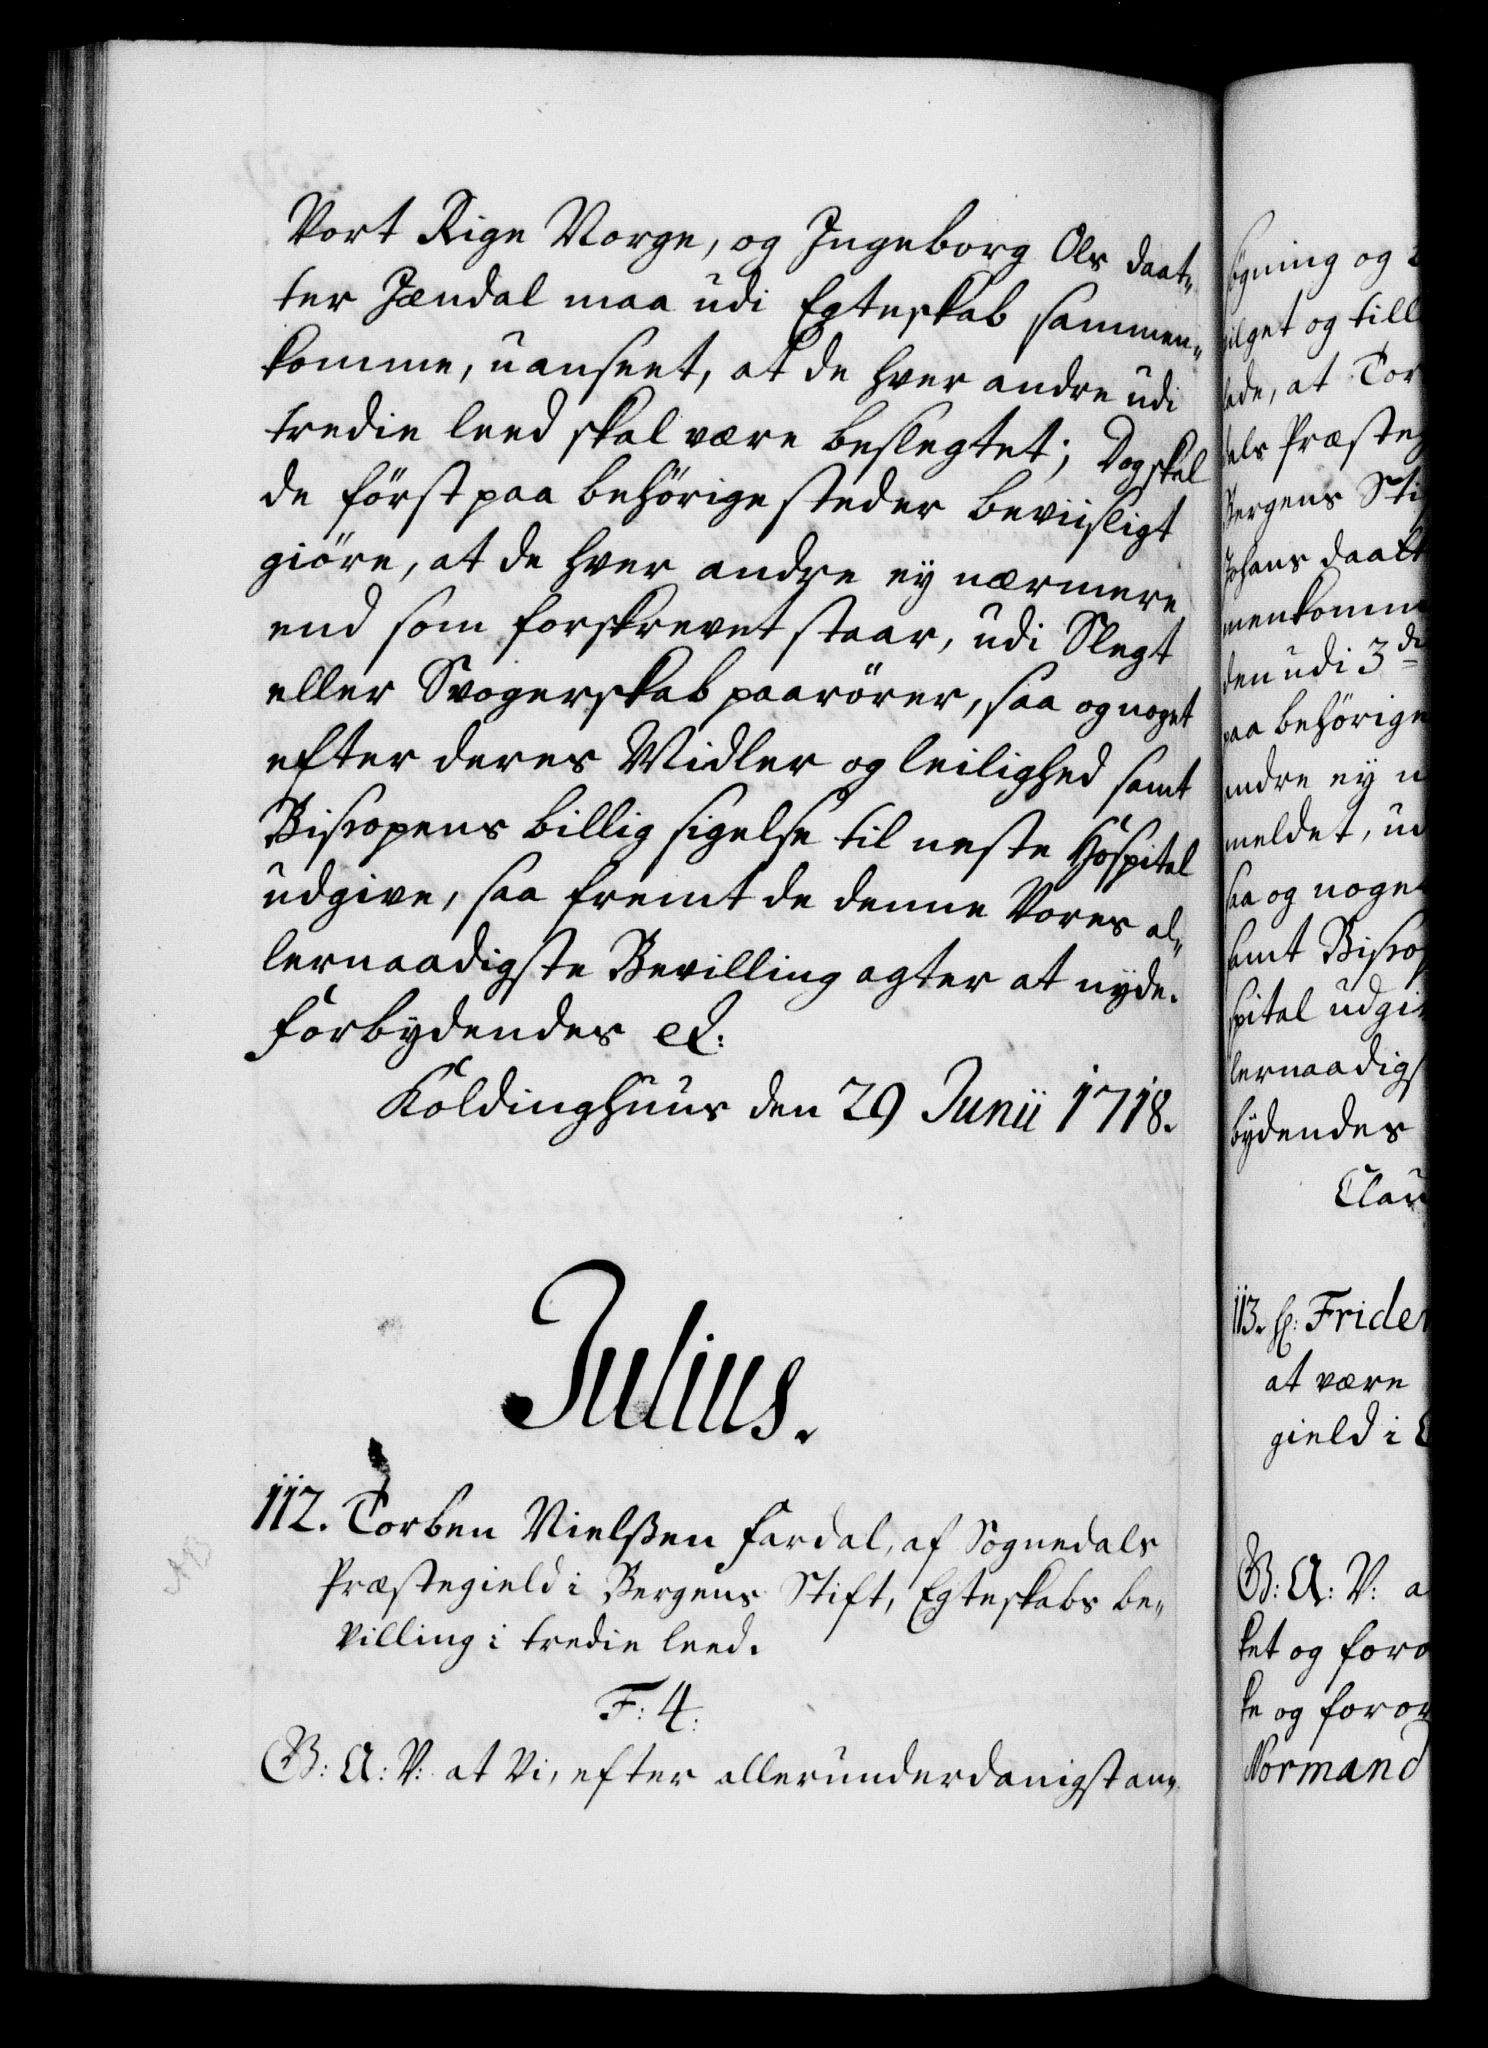 Vort Rige Norge, og Ingeborg Ols daat-
ter Jændal maa udi Egteskab sammen-
komme, uanseet, at de hver andre udi
tredie leed skal være beslegtet; Dog skal
de först paa behörige steder beviisligt
giöre, at de hver andre ey nærmere
end som forskrevet staar, udi Slegt
eller Svogerskab paarörer, saa og noget
efter deres Midler og leilighed samt
Biscopens billig sigelse til neste Hospital
udgive, saa fremt de denne Vores al-
lernaadigste Bevilling agter at nyde.
Forbydendes &:
Koldinghuus den 29 Junii 1718.
Julius.
112. Torben Nielßen Fardal, af Sognedals
Præstegield i Bergens Stift, Egteskabs be-
villing i tredie leed.
F: 4:
G: A: V: at Vi, efter allerunderdanigst an-
søgning og
vilget og till
lade, at Tor
dals Præsteg
Bergens Sti
Johans daatt
menkomm
den udi 3de
paa behörige
andre ey n
meldet, ud
saa og noget
samt Biscop
spital udgi
lernaadigs
bydendes
Clau
113. H: Frider
at være
gield i
G: A: V: a
ket og foro
ke og foror
Normand